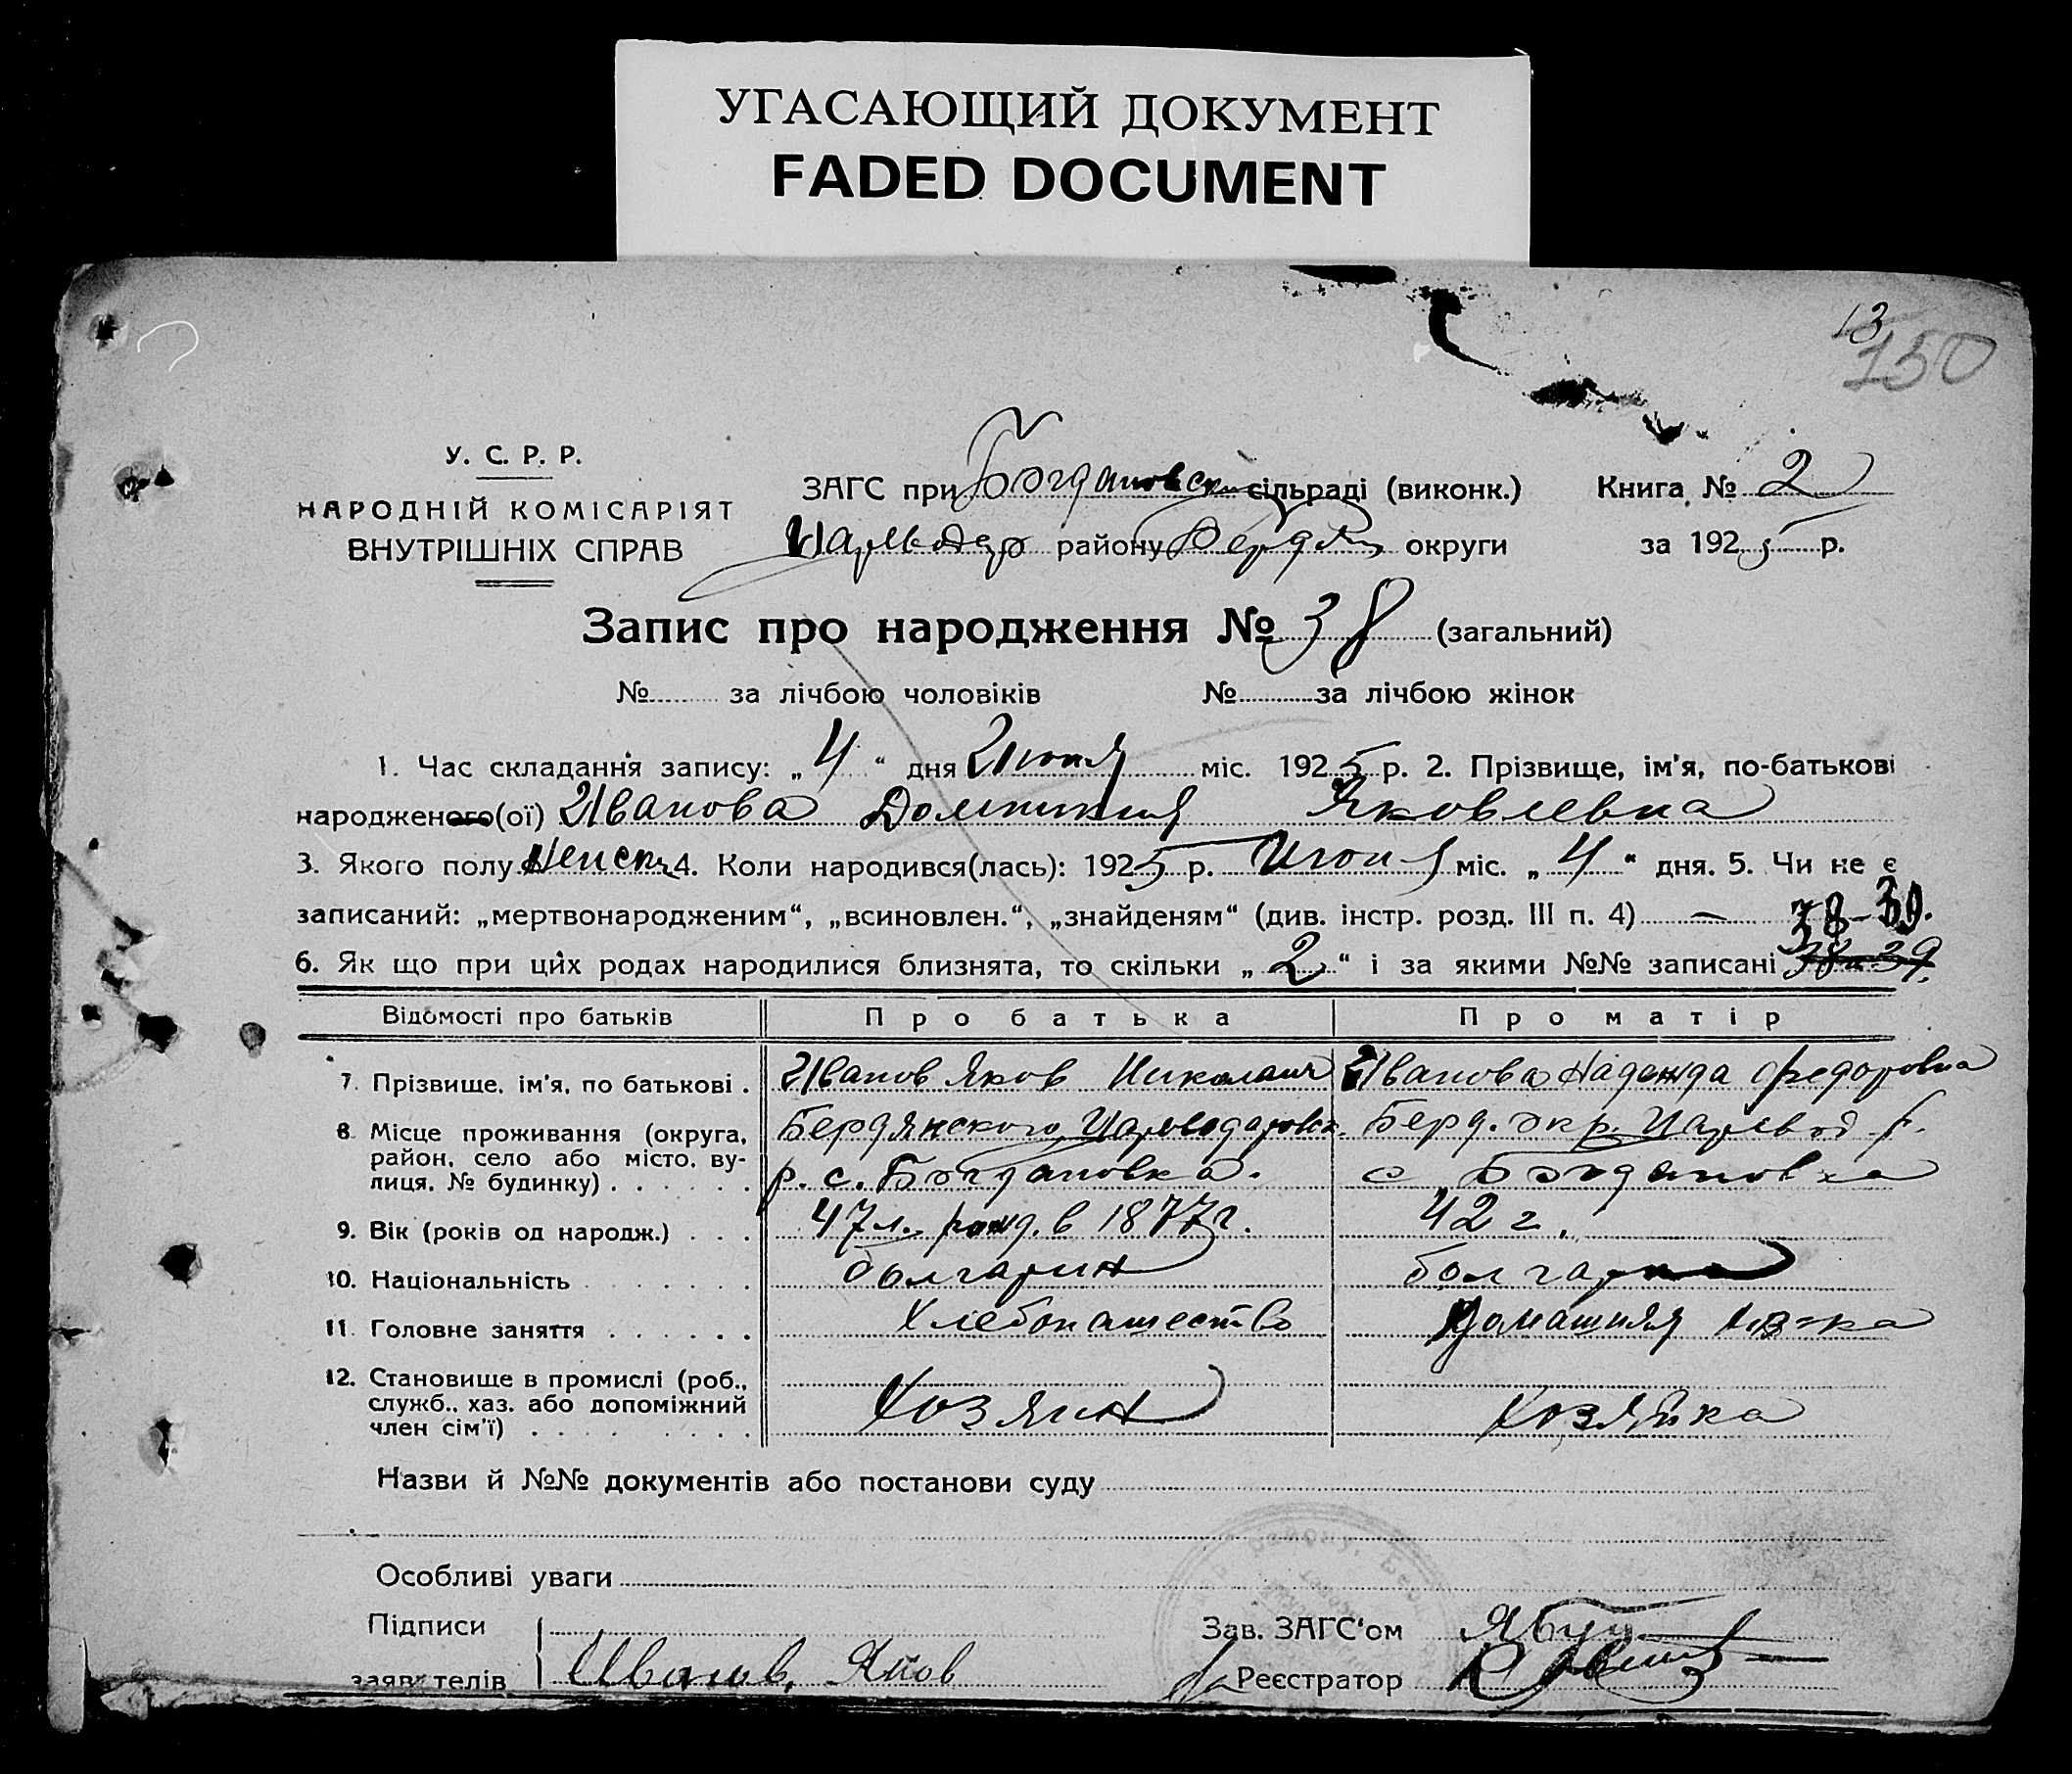 УГАСАЮЩИЙ ДОКУМЕНТ
FADED DOCUMENT
13
150
У. С. Р. Р.
НАРОДНІЙ КОМІСАРІЯТ
ВНУТРІШНІХ СПРАВ
ЗАГС при Богдановском сільраді (виконк.) Книга № 2
району Бердян округи за 1925 р.
Запис про народження № 38 (загальний)
№ за лічбою чоловіків № за лічбою жінок
1. Час складання запису: „4“ дня Июня міс. 1925 р. 2. Прізвище, ім'я, по-батькові
народженого(ої) Иванова Домникия Яковлевна
3. Якого полу Женск. 4. Коли народився(лась): 1925 р. Июня міс. „4“ дня. 5. Чи не є
записаний: „мертвонародженим“, „всиновлен.“, „знайденям“ (див. інстр. розд. III п. 4) — 38-39.
6. Як що при цих родах народилися близнята, то скільки „2“ і за якими №№ записані 38-39.
Відомості про батьків Про батька Про матір
7. Прізвище, ім'я, по батькові . Иванов Яков Николаич Иванова Надежда Федоровна
8. Місце проживання (округа, район, село або місто, вулиця, № будинку) . . . . . . Бердянского, Цареводаровск. р. с. Богдановка. Берд. окр. Царевод р. с Богдановка
9. Вік (років од народж.) . . . 47 л. рожд. в 1877 г. 42 г.
10. Національність . . . . . . . болгарин болгарка
11. Головне заняття . . . . . . Хлебопашество Домашняя
12. Становище в промислі (роб., служб., хаз. або допоміжний член сім'ї) . . . . . . . . . Хозяин Хозяйка
Назви й №№ документів або постанови суду
Особливі уваги
Підписи Зав. ЗАГС'ом
заявителів Иванов, Яков Реєстратор